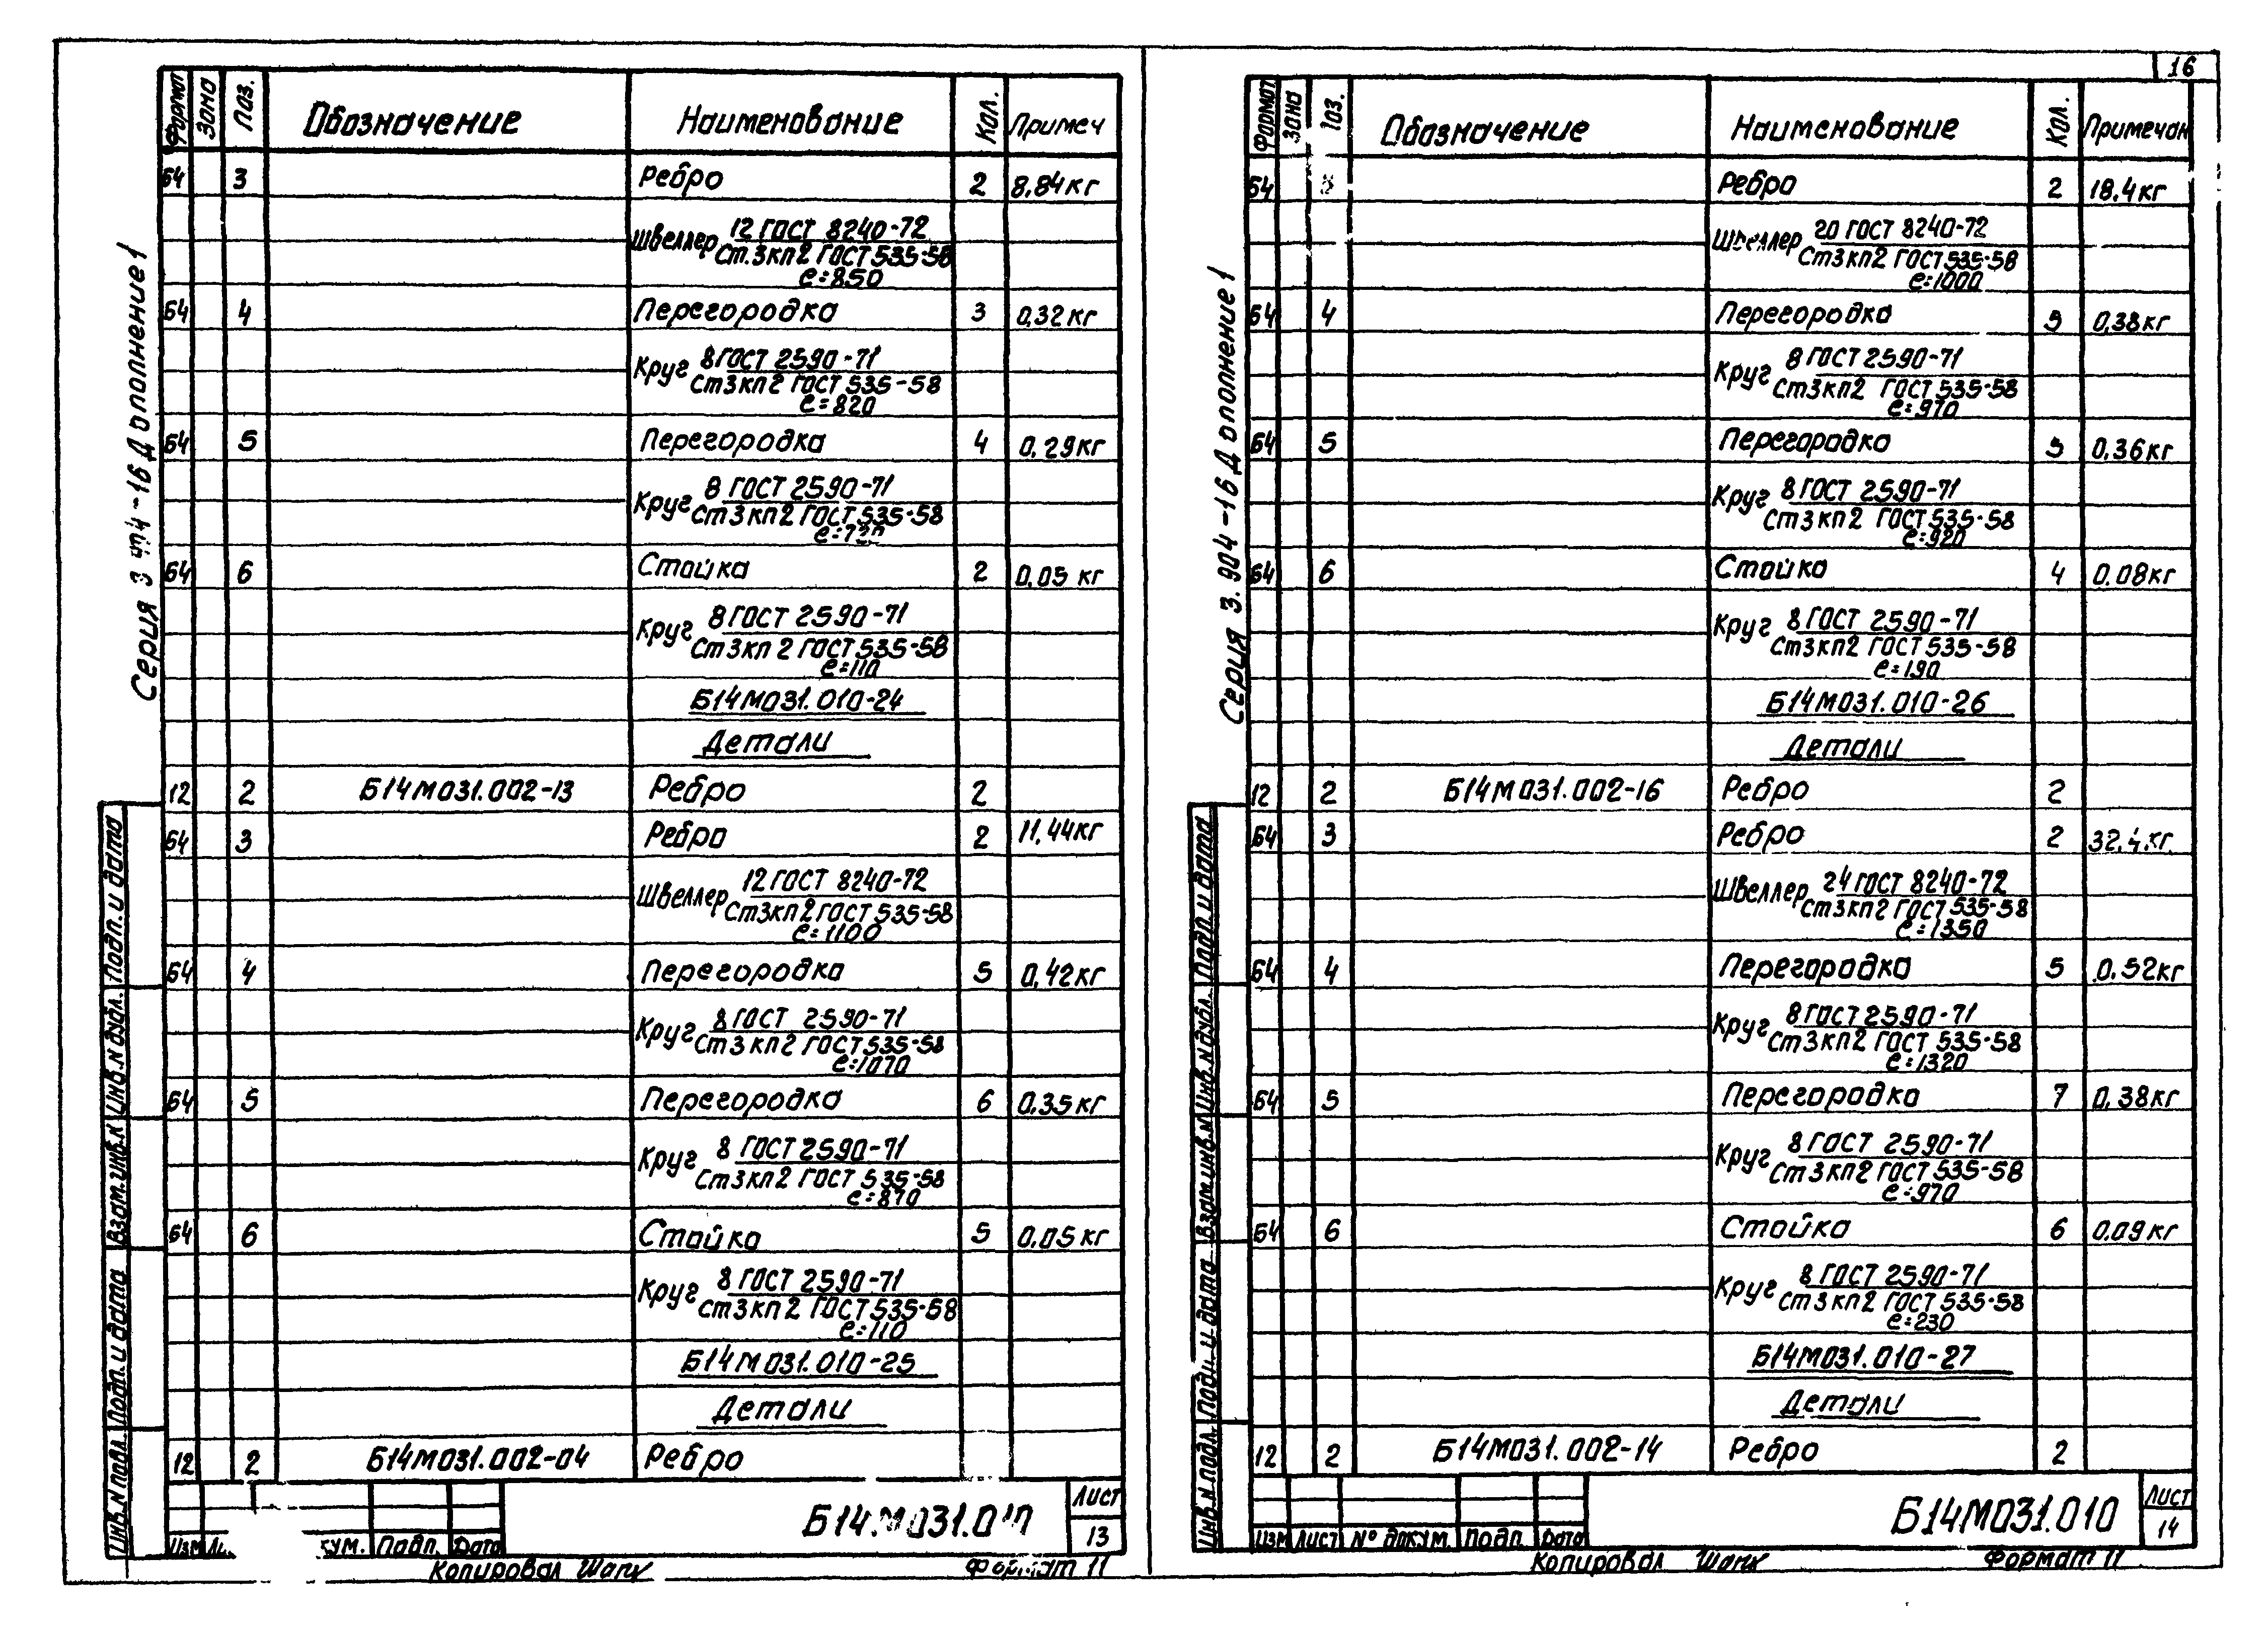 16
Серия 3.904-16 Дополнение 1
Формат Зона Поз. Обозначение Наименование Кол. Примеч
Б4 3 Ребро 2 8,84кг
Швеллер 12 ГОСТ 8240-72
Ст.3кп2 ГОСТ 535-58
ℓ=850
Б4 4 Перегородка 3 0,32кг
Круг 8 ГОСТ 2590-71
Ст3кп2 ГОСТ 535-58
ℓ=820
Б4 5 Перегородка 4 0,29кг
Круг 8 ГОСТ 2590-71
Ст3кп2 ГОСТ 535-58
Б4 6 Стойка 2 0,05 кг
Круг 8 ГОСТ 2590-71
Ст3кп2 ГОСТ 535-58
ℓ=110
Б14М031.010-24
Детали
12 2 Б14М031.002-13 Ребро 2
Б4 3 Ребро 2 11,44кг
Швеллер 12 ГОСТ 8240-72
Ст3кп2 ГОСТ 535-58
ℓ=1100
Б4 4 Перегородка 5 0,42кг
Круг 8 ГОСТ 2590-71
Ст3кп2 ГОСТ 535-58
ℓ=1070
Б4 5 Перегородка 6 0,35кг
Круг 8 ГОСТ 2590-71
Ст3кп2 ГОСТ 535-58
ℓ=870
Б4 6 Стойка 5 0,05кг
Круг 8 ГОСТ 2590-71
Ст3кп2 ГОСТ 535-58
ℓ=110
Б14М031.010-25
Детали
12 2 Б14М031.002-04 Ребро
Инв.N подл. Подп. и дата Взам.инв.N Инв.N дубл. Подп. и дата
Изм Подп. Дата
Б14М031.010
Лист
13
Копировал Шанх
Формат 11
Серия 3.904-16 Дополнение 1
Формат Зона Поз. Обозначение Наименование Кол. Примечан
Б4 Ребро 2 18.4кг
Швеллер 20 ГОСТ 8240-72
Ст3кп2 ГОСТ 535-58
ℓ=1000
Б4 4 Перегородка 5 0,38кг
Круг 8 ГОСТ 2590-71
Ст3кп2 ГОСТ 535-58
ℓ=970
Б4 5 Перегородка 5 0,36кг
Круг 8 ГОСТ 2590-71
Ст3кп2 ГОСТ 535-58
ℓ=920
Б4 6 Стойка 4 0.08кг
Круг 8 ГОСТ 2590-71
Ст3кп2 ГОСТ 535-58
ℓ=190
Б14М031.010-26
Детали
12 2 Б14М031.002-16 Ребро 2
Б4 3 Ребро 2 32.4.кг
Швеллер 24 ГОСТ 8240-72
Ст3кп2 ГОСТ 535-58
ℓ=1350
Б4 4 Перегородка 5 0.52кг
Круг 8 ГОСТ 2590-71
Ст3кп2 ГОСТ 535-58
ℓ=1320
Б4 5 Перегородка 7 0,38кг
Круг 8 ГОСТ 2590-71
Ст3кп2 ГОСТ 535-58
ℓ=970
Б4 6 Стойка 6 0.09кг
Круг 8 ГОСТ 2590-71
Ст3кп2 ГОСТ 535-58
ℓ=230
Б14М031.010-27
Детали
12 2 Б14М031.002-14 Ребро 2
Инв.N подл. Подп. и дата Взам.инв.N Инв.N дубл. Подп. и дата
Изм Лист N° докум. Подп. Дата
Б14М031.010
Лист
14
Копировал Шанх
Формат 11